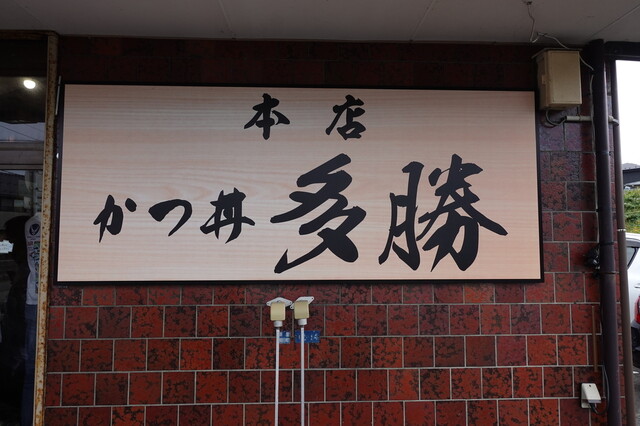 本店
かつ丼 多勝